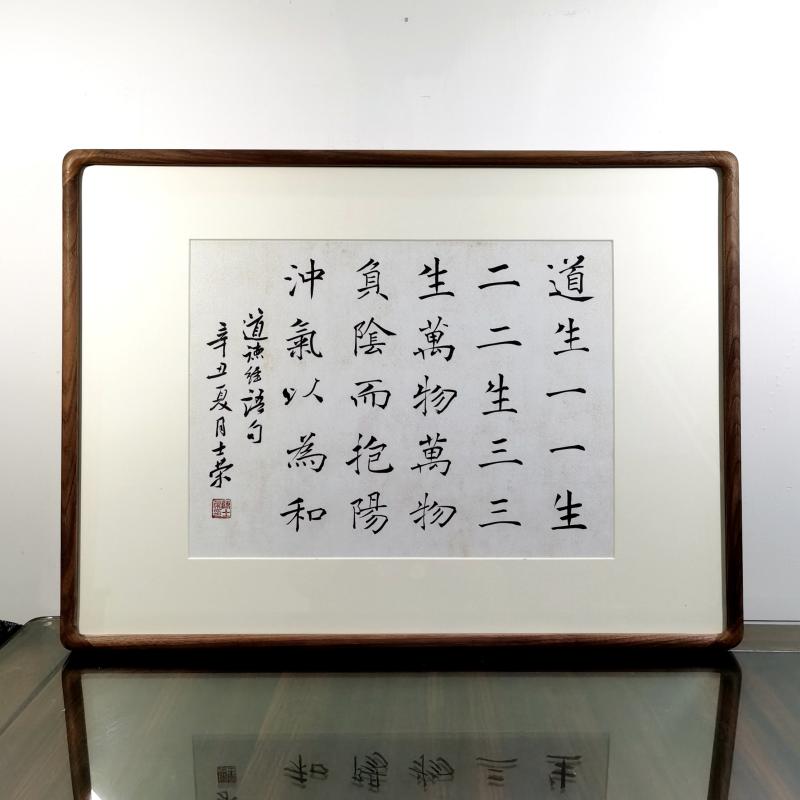 道生一一生
二二生三三
生萬物萬物
負陰而抱陽
沖氣以為和
道德經語句
辛丑夏月士荣